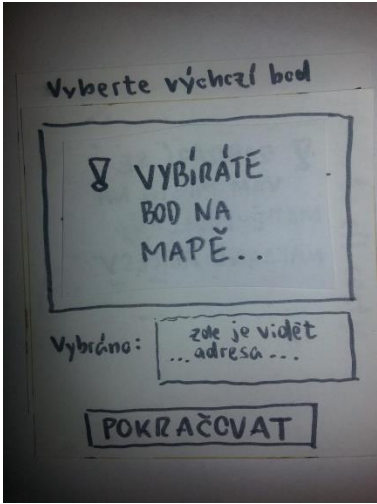 Vyberte výchczí bod
! VYBÍRÁTE
BOD NA
MAPĚ...
Vybráno:
zde je vidět
... adresa ...
POKRAČOVAT